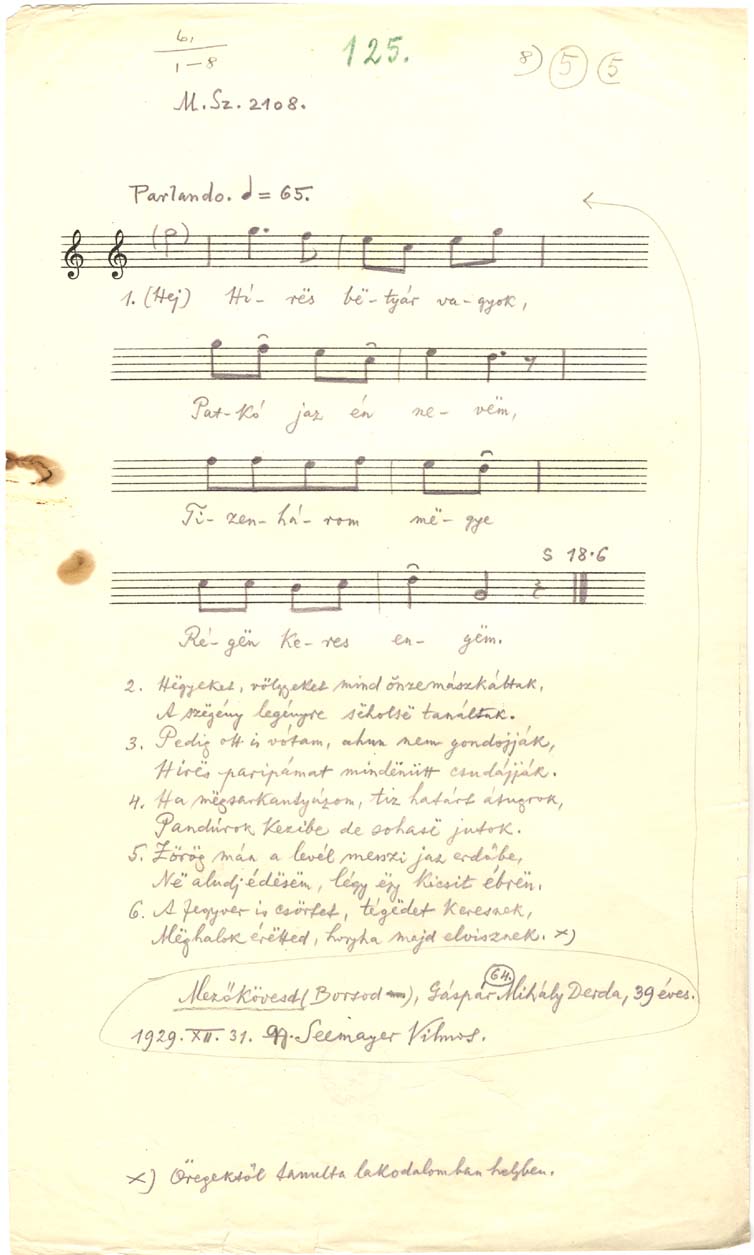 6,
1-8
125.
8) 5 5
M. Sz. 2108.
Parlando. = 65.
(p)
1. (Hej) Hí- rës bë- tyár va- gyok,
Pat- kó jaz én ne- vëm,
Ti- zen- há- rom më- gye
Ré- gën ke- res en- gëm.
S 18.6
2. Hëgyeket, völgyeket mind önzemászkáltak,
A szëgény legényre sëholsë tanáltak.
3. Pedig ott is vótam, ahun nem gondojják,
Hírës paripámat mindënütt csudájják.
4. Ha mëgsarkantyúzom, tiz határt átugrok,
Pandúrok kezibe de sohasë jutok.
5. Zörög mán a levél messzi jaz erdőbe,
Në aludj édësëm, légy ëgy kicsit ébrën.
6. A fegyver is csörtet, tégëdet keresnek,
Mëghalok érëtted, horgha majd elvisznek. x)
Mezőkövesd (Borsod), Gáspár Mihály Derda, 39 éves.
64.
1929. XII. 31. Seemayer Vilmos.
x) Öregektől tanulta lakodalomban helyben.